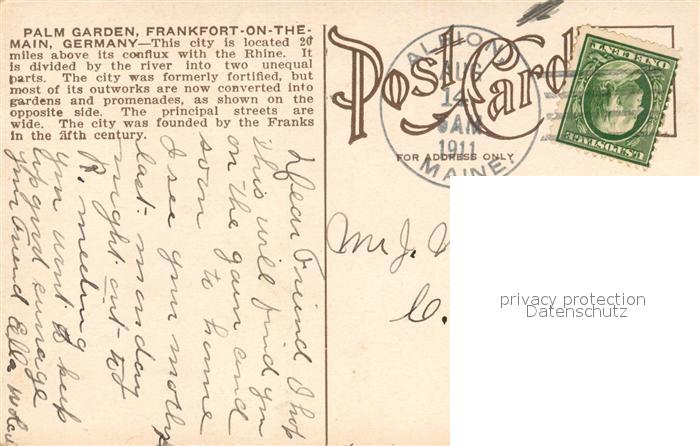 PALM GARDEN, FRANKFORT-ON-THE-
MAIN, GERMANY—This city is located 20
miles above its conflux with the Rhine. It
is divided by the river into two unequal
parts. The city was formerly fortified, but
most of its outworks are now converted into
gardens and promenades, as shown on the
opposite side. The principal streets are
wide. The city was founded by the Franks
in the fifth century.
Post Card
FOR ADDRESS ONLY
ALBION
AUG
14
AM
1911
MAINE
U.S. POSTAGE
ONE CENT
Dear Friend I hop
this will find you
on the gain and
soon to home
I see your mother
last monday
night out to
P. meeting
you want to keep
up good curage
your friend Ella
Mr J.
C.
privacy protection
Datenschutz